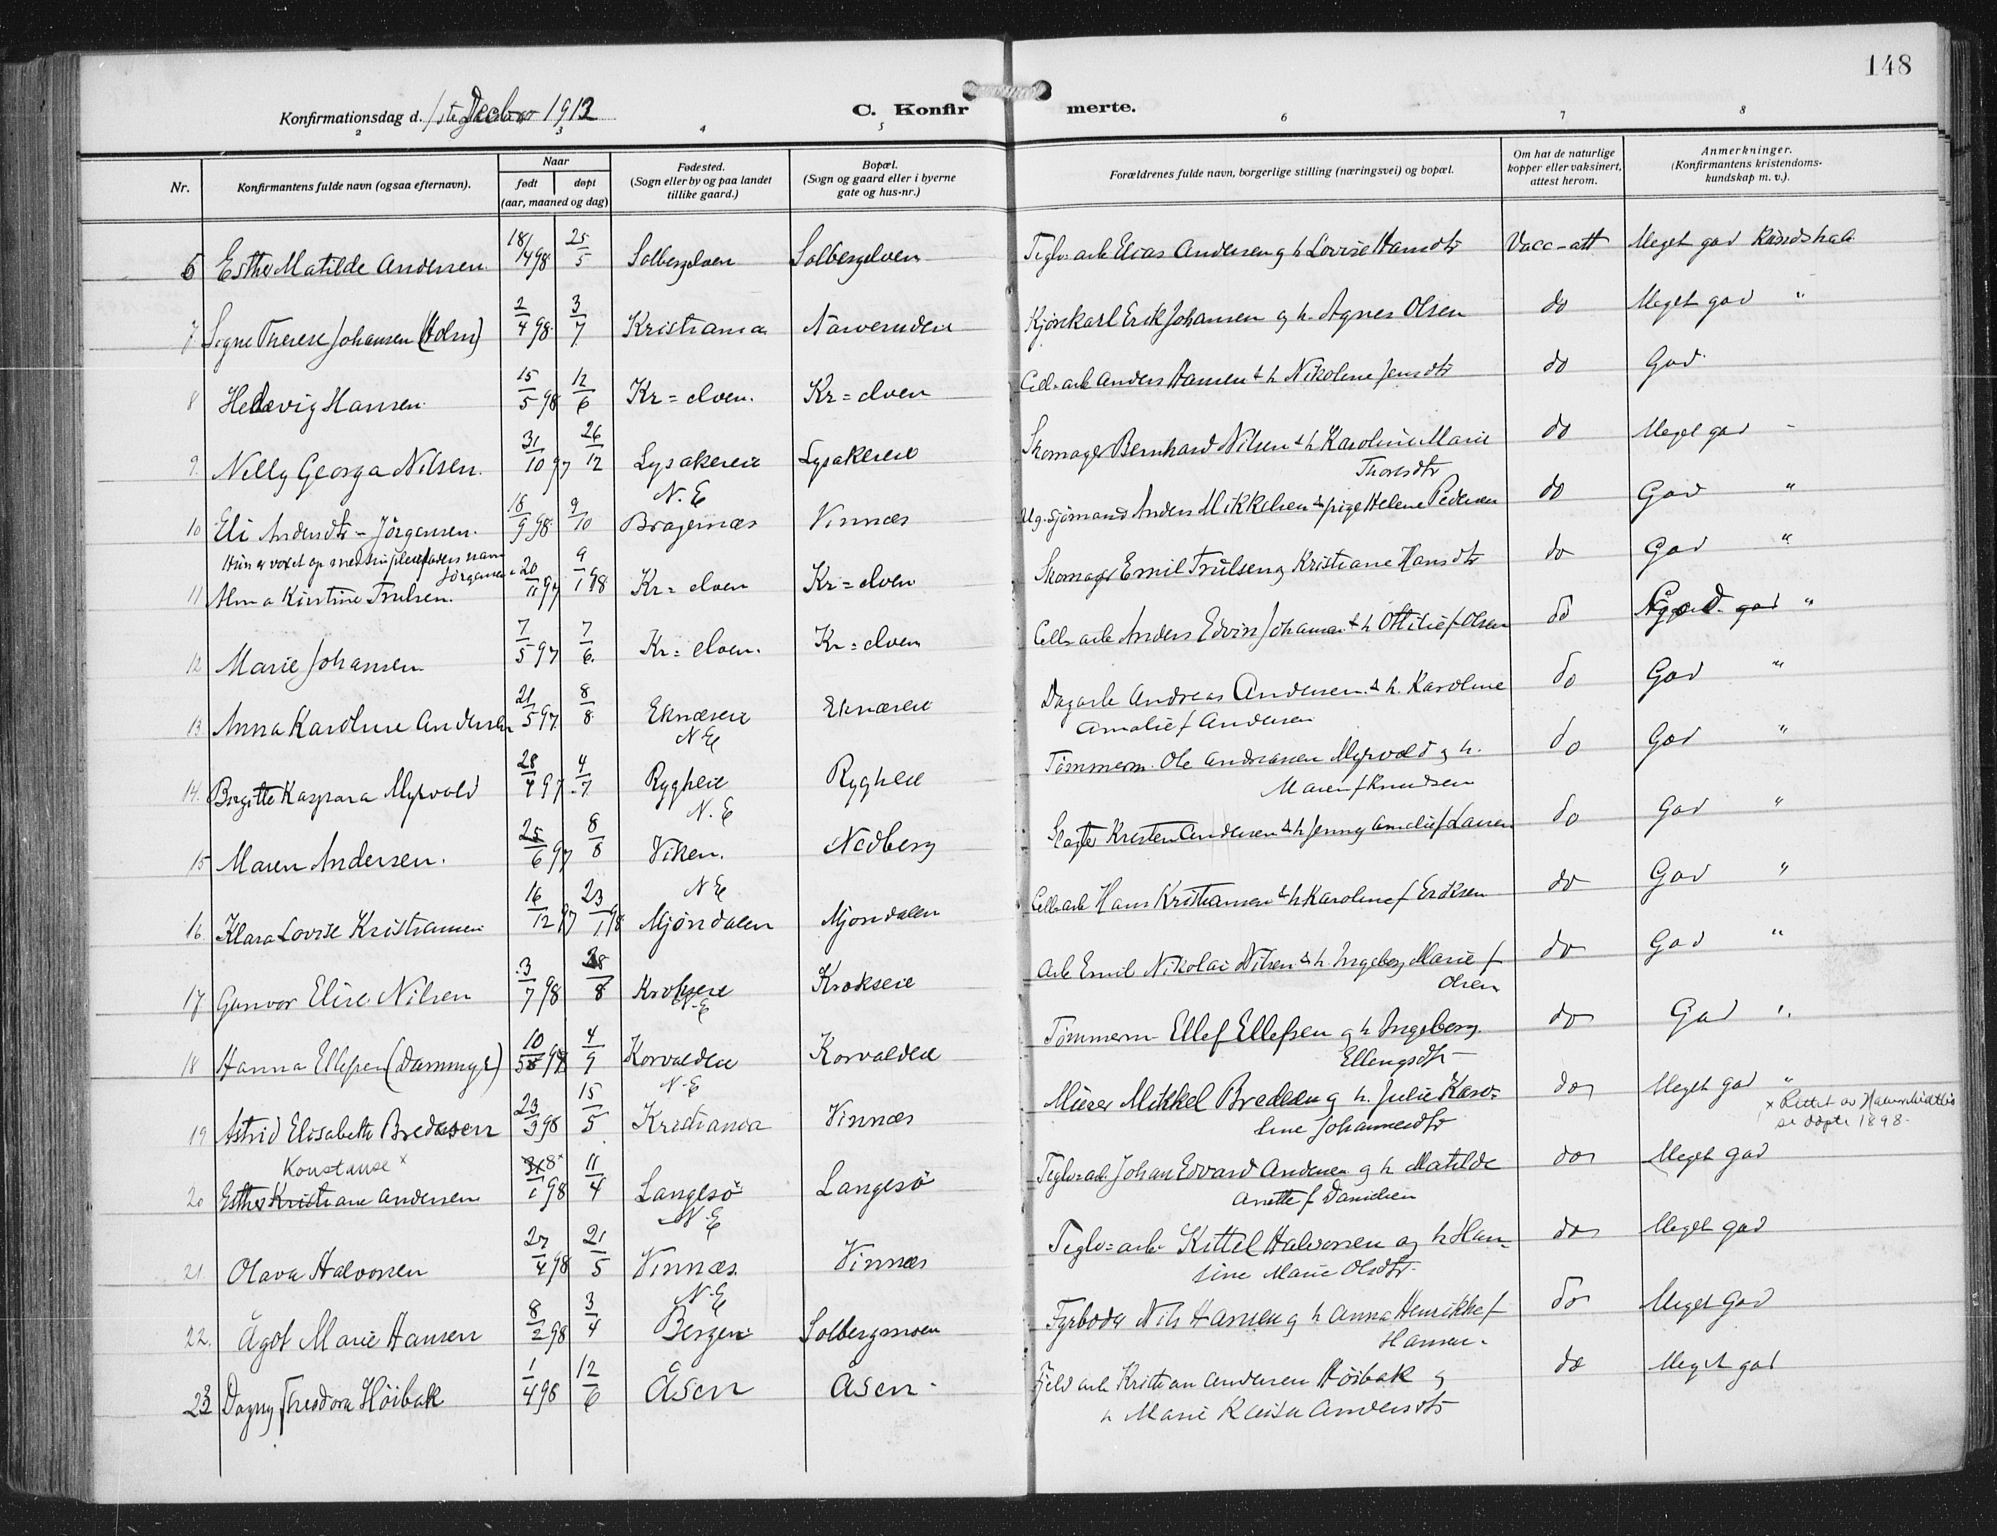 148
Konfirmationsdag d. 1ste Decbr 1912
C. Konfirmerte.
2 3 4 5 6 7 8
Nr. Konfirmantens fulde navn (ogsaa efternavn). Naar født døpt (aar, maaned og dag) Fødested. (Sogn eller by og paa landet tillike gaard.) Bopæl. (Sogn og gaard eller i byerne gate og hus-nr.) Forældrenes fulde navn, borgerlige stilling (næringsvei) og bopæl. Om hat de naturlige kopper eller vaksinert, attest herom. Anmerkninger. (Konfirmantens kristendomskundskap m. v.).
6 Esther Matilde Andersen 18/4 98 25/5 Solbergelven Solbergelven Teglv-arb Elias Andersen og h Lovise Hansdtr Vacc-att Meget god Kundskab
7 Signe Therese Johansen (Holm) 2/4 98 3/7 Kristiania Narverudeie Kjørekarl Erik Johansen og h. Agnes Olsen do Meget god "
8 Hedevig Hansen 15/5 98 12/6 Kr=elven. Kr=elven Cell-arb Anders Hansen & h Nikoline Jensdtr do God
9 Nelly Georga Nilsen. 31/10 97 26/12 Lysakereie N.E Lysakereie Skomager Bernhard Nilsen & h Karoline Marie Thoresdtr do Meget god -
10 Eli Andersdtr - Jörgensen. 18/9 98 9/10 Bragernæs Vinnæs Ug. Sjømand Anders Mikkelsen & pige Helene Pedersen do God "
Hun er voxet op med sin pleiefaders navn Jörgensen
11 Alma Kirstine Trulsen. 20/11 97 9/1 98 Kr=elven Kr=elven Skomager Emil Trulsen og Kristiane Hansdtr do God "
12 Marie Johansen 7/5 97 7/6 Kr=elven. Kr=elven Cell-arb Anders Edvin Johansen & h Ottilie f Olsen do god "
13 Anna Karoline Andersen 21/5 97 8/8 Eknæseie N E Eknæseie Dagarb Andreas Andersen & h. Karoline Amalie f Andersen do God "
14. Birgitte Kaspara Myrvold 28/4 97 4/7 Rygheie N.E Rygheie Tømmerm. Ole Andreasen Myrvold og h. Maren f Knudsen do God "
15 Maren Andersen. 25/6 97 8/8 Viken. N E Nedberg Slagter Kristen Andersen & h Jenny Amalie f Larsen do God "
16. Klara Lovise Kristiansen 16/12 97 23/1 98 Mjöndalen Mjöndalen Cell-arb Hans Kristiansen & h Karoline f Eriksen do God "
17 Gunvor Elise Nilsen 3/7 98 28/8 Krokseie N.E Krokseie Arb Emil Nikolai Nilsen & h. Ingeborg Marie f Olsen do God "
18 Hanna Ellefsen (Dammyr) 10/5 98 4/9 Korvaldeie N.E Korvaldeie Tömmerm Ellef Ellefsen og h Ingeborg Ellengsdtr do God "
19 Astrid Elisabeth Bredesen 23/3 98 15/5 Kristiania Vinnæs Murer Mikkel Bredesen og h. Julie Karoline Johannesdtr do Meget god "
Konstanse x
20 Esther Kristiane Andersen 8 x /1 98 11/4 Langesö N.E Langesö Teglv=arb Johan Edvard Andersen og h Matilde Anette f Danielsen do Meget god
x Rettet av se döpte 1898.
21. Olava Halvorsen 27/4 98 21/5 Vinnæs N.E Vinnæs Teglv=arb Kittel Halvorsen og h Hansine Marie Olsdtr. do Meget god
22. Ågot Marie Hansen 8/2 98 3/4 Bergen Solbergmoen Fyrböder Nils Hansen og h Anna Henrikke f Hansen. do Meget god
23 Dagny Theodora Höibak 1/4 98 12/6 Åsen Åsen Jeld arb Kristian Andersen Höibak og h Marie Kaisa Andersdtr do Meget god